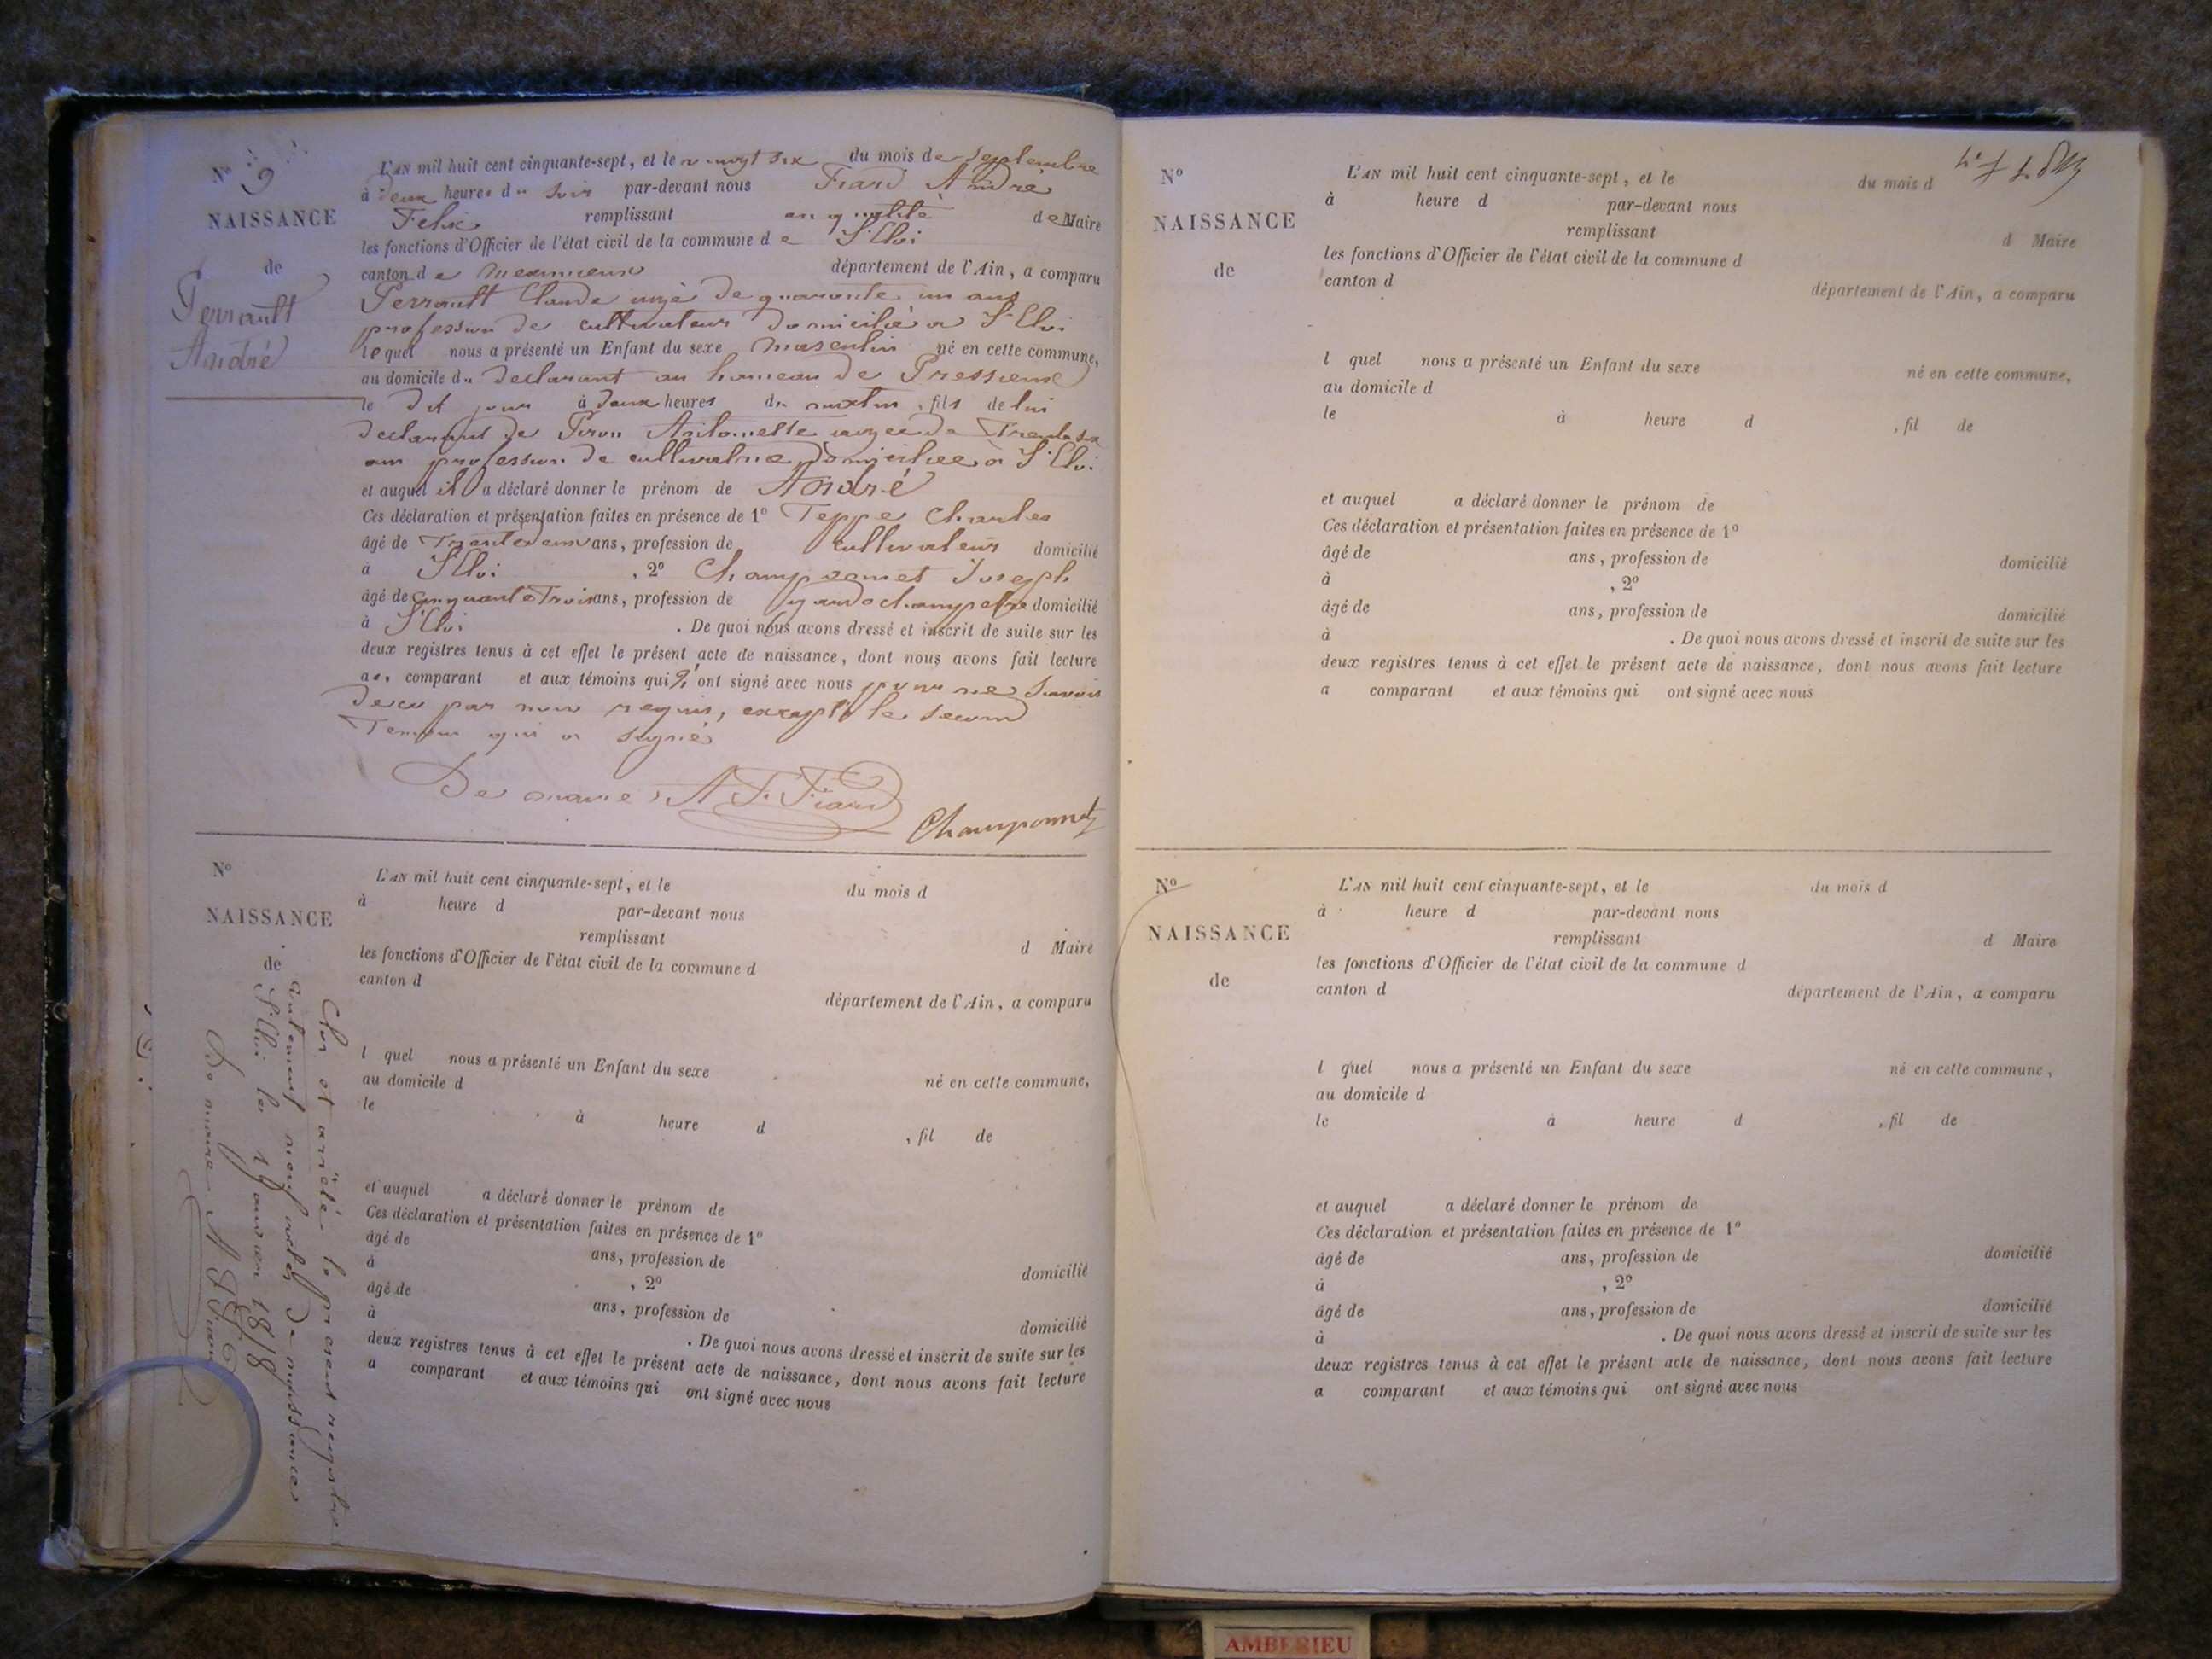 No 9
NAISSANCE
de
Perrault
André
L'AN mil huit cent cinquante-sept, et le vingt six du mois de Septembre
à deux heures du soir par-devant nous Fiard André
Felix remplissant en qualité de Maire
les fonctions d'Officier de l'état civil de la commune de St Eloi
canton de meximieux département de l'Ain, a comparu
Perrault Claude agé de quarante un ans
profession de cultivateur domicilié a St Eloi
lequel nous a présenté un Enfant du sexe masculin né en cette commune,
au domicile du declarant au hameau de
le dit jour à deux heures du matin, fils de lui
declarant de Piron Antoinette agée de Trente six
ans profession de cultivatrice domiciliee a St Eloi
et auquel il a déclaré donner le prénom de André
Ces déclaration et présentation faites en présence de 1o Teppe Charles
âgé de Trente deux ans, profession de cultivateur domicilié
à St Eloi, 2o Champonnet Joseph
âgé de cinquante Trois ans, profession de garde champetre domicilié
à St Eloi. De quoi nous avons dressé et inscrit de suite sur les
deux registres tenus à cet effet le présent acte de naissance, dont nous avons fait lecture
au comparant et aux témoins qui n'ont signé avec nous pour ne savoir
de ce par nous requis, excepté le second
Temoin qui a signé
Le maire A F Fiard
Champonnet
No
NAISSANCE
de
L'AN mil huit cent cinquante-sept, et le du mois d
à heure d par-devant nous
remplissant d Maire
les fonctions d'Officier de l'état civil de la commune d
canton d département de l'Ain, a comparu
l quel nous a présenté un Enfant du sexe né en cette commune,
au domicile d
le à heure d , fil de
et auquel a déclaré donner le prénom de
Ces déclaration et présentation faites en présence de 1o
âgé de ans, profession de domicilié
à , 2o
âgé de ans, profession de domicilié
à . De quoi nous avons dressé et inscrit de suite sur les
deux registres tenus à cet effet le présent acte de naissance, dont nous avons fait lecture
a comparant et aux témoins qui ont signé avec nous
Clos et arrêté le présent registre
contenant neuf actes de naissance
St Eloi le 1 janvier 1858
Le maire A F Fiard
No
NAISSANCE
de
L'AN mil huit cent cinquante-sept, et le du mois d
à heure d par-devant nous
remplissant d Maire
les fonctions d'Officier de l'état civil de la commune d
canton d département de l'Ain, a comparu
l quel nous a présenté un Enfant du sexe né en cette commune,
au domicile d
le à heure d , fil de
et auquel a déclaré donner le prénom de
Ces déclaration et présentation faites en présence de 1o
âgé de ans, profession de domicilié
à , 2o
âgé de ans, profession de domicilié
à . De quoi nous avons dressé et inscrit de suite sur les
deux registres tenus à cet effet le présent acte de naissance, dont nous avons fait lecture
a comparant et aux témoins qui ont signé avec nous
No
NAISSANCE
de
L'AN mil huit cent cinquante-sept, et le du mois d
à heure d par-devant nous
remplissant d Maire
les fonctions d'Officier de l'état civil de la commune d
canton d département de l'Ain, a comparu
l quel nous a présenté un Enfant du sexe né en cette commune,
au domicile d
le à heure d , fil de
et auquel a déclaré donner le prénom de
Ces déclaration et présentation faites en présence de 1o
âgé de ans, profession de domicilié
à , 2o
âgé de ans, profession de domicilié
à . De quoi nous avons dressé et inscrit de suite sur les
deux registres tenus à cet effet le présent acte de naissance, dont nous avons fait lecture
a comparant et aux témoins qui ont signé avec nous
AMBERIEU